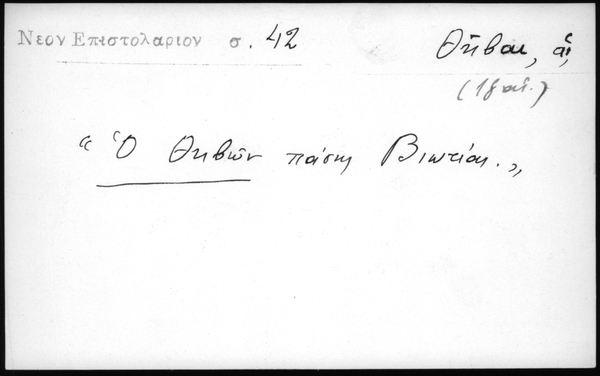 Νεον Επιστολαριον σ. 42
Θῆβαι, αἱ,
(18 αἰ.)
“ Ὁ Θηβῶν πάσης Βιωτίας. „